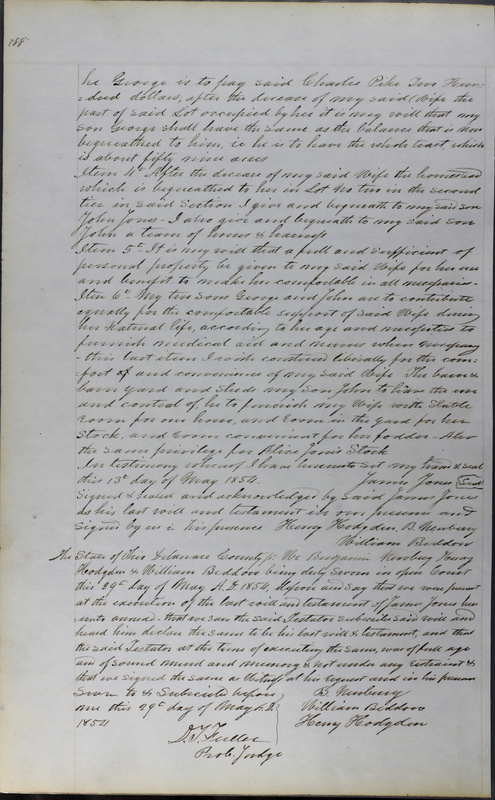 188
he George is to pay said Charles Pike Two Hun-
=dred dollars, after the decease of my said Wife the
part of said Lot occupied by her it is my will that my
son George shall have the same as the balance that is
bequeathed to him, ie he is to have the whole tract, which
is about fifty nine acres
Item 4th After the decease of my said Wife the homestead
which is bequeathed to her in Lot No two in the second
tier in said Section I give and bequeath to my said son
John Jones - I also give and bequeath to my said son
John a team of horses & harness
Item 5th It is my will that a full and sufficient of
personal property be given to my said Wife for her use
and benefit to make her comfortable in all
Item 6th My two sons George and John are to contribute
equally for the comfortable support of said Wife during
her natural life, according to her age and necessities to
furnish medical aid and nurses when necessary
- this last item I wish construed liberally for the com-
=fort of and convenience of my said Wife The barn &
barn yard and sheds my son John to have the use
and control of he to furnish my Wife with Stable
room for one horse, and room in the yard for her
Stock, and room convenient for her fodder - Also
the same privilege for Alice Jones Stock
In testimony whereof I have hereunto set my hand & seal
this 13th day of May 1854. James Jones Seal
Signed & sealed and acknowledged by said James Jones
as his last will and testament in our presence and
signed by us in his presence Henry Hodgden, B. Newbury
William Beddow
The State of Ohio Delaware County ss. We Benjamin Newbury Henry
Hodgden & William Beddow being duly sworn in open Court
this 29th day of May A.D. 1854, depose and say that we were present
at the execution of the last will and testament of James Jones here
=unto annexed. that we saw the said Testator subscribe said will and
heard him declare the same to be his last will & testament, and that
the said Testator at the time of executing the same, was of full age
and of sound mind and memory & not under any restraint &
that we signed the same as at his request and in his presence
Sworn to & Subscribed before B. Newbury
me this 29th day of May A.D. William Beddow
1854 Henry Hodgden
D. T. Fuller
Prob. Judge